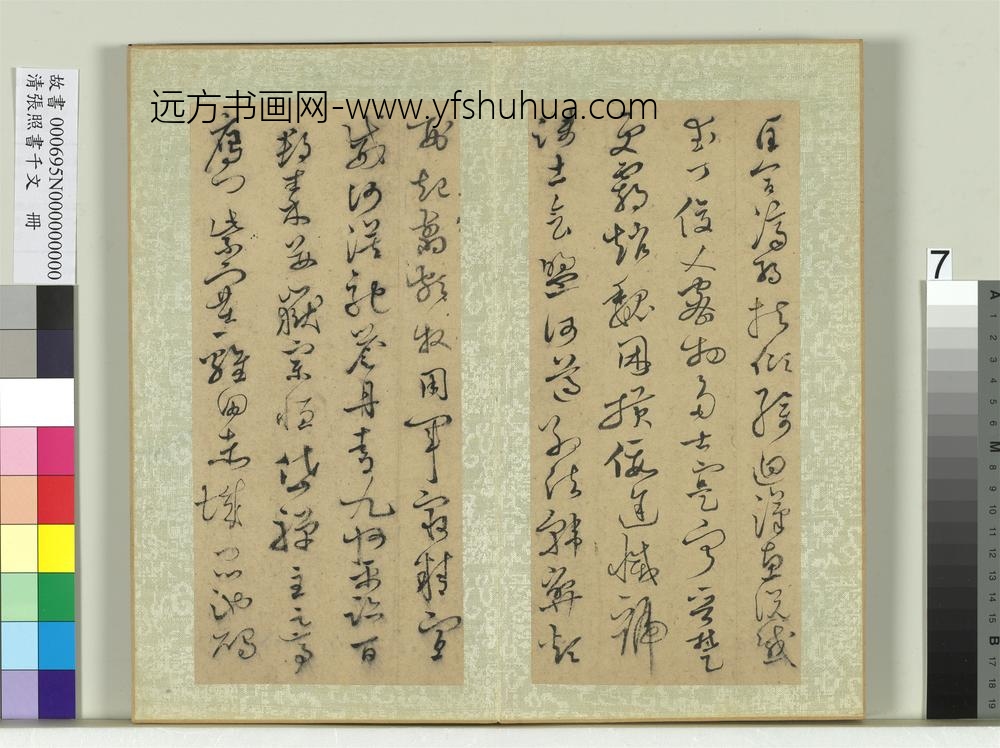 远方书画网-www.yfshuhua.com
匡合濟弱扶傾綺迴漢惠說感
武丁俊乂密勿多士寔寧晉楚
更霸趙魏困橫假途滅虢
踐土會盟何遵約法韓弊煩
刑起翦頗牧用軍最精宣
威沙漠馳譽丹青九州禹跡百
郡秦并嶽宗恆岱禪主云亭
雁門紫塞雞田赤城昆池碣
故書 000695N000000000
清張照書千文 冊
7
A 1 2 3 4 5 6 M 8 9 10 11 12 13 14 15 B 17 18 19